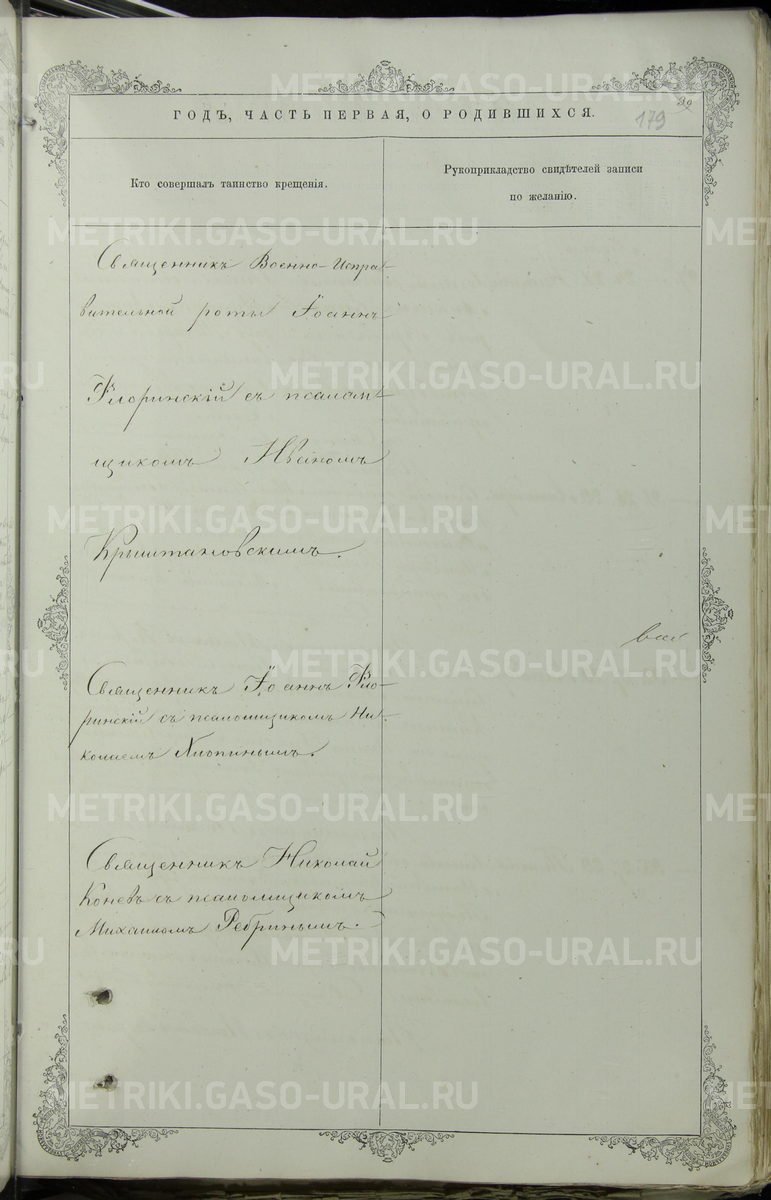 ГОДЪ, ЧАСТЬ ПЕРВАЯ, О РОДИВШИХСЯ.
179
Кто совершалъ таинство крещенія.
Рукоприкладство свидѣтелей записи
по желанію.
Священникъ Военно-Испра-
вительной роты Іоаннъ
Флоринскій съ псалом-
щикомъ Иваномъ
Крыштановскимъ.
Священникъ Іоаннъ Фло-
ринскій съ псаломщикомъ Ни-
Хлопинымъ.
Священникъ Николай
Коневъ съ псаломщикомъ
Михаиломъ Ребринымъ.
METRIKI.GASO-URAL.RU